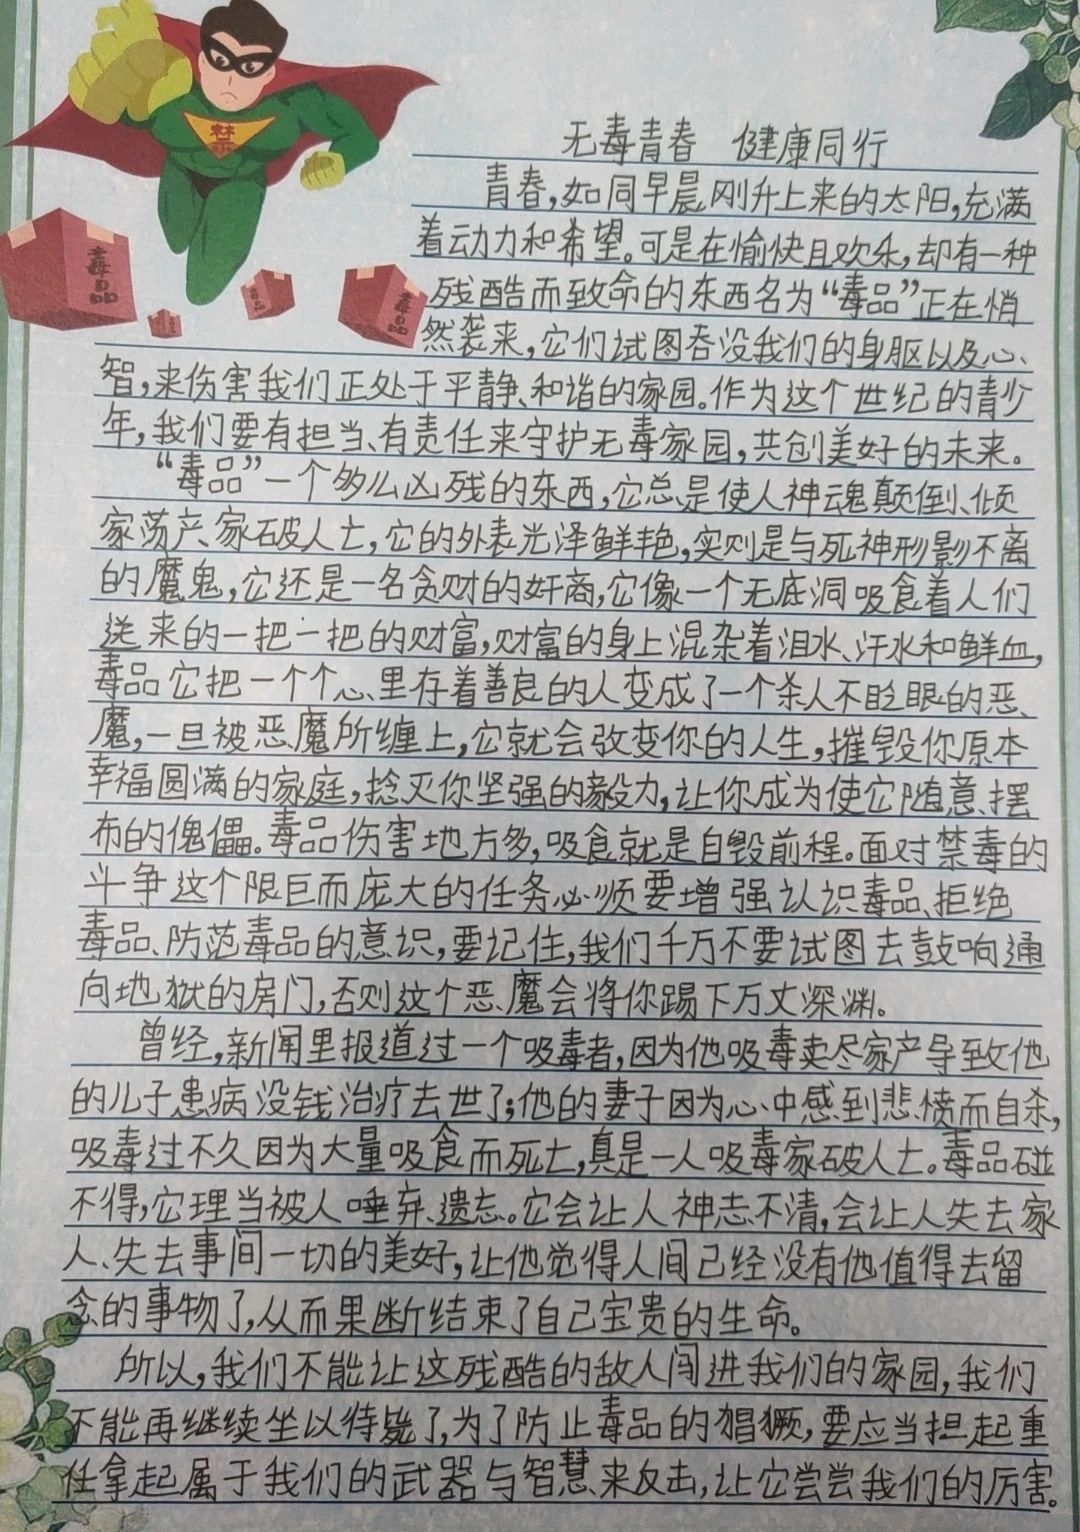 禁
毒品
毒品
毒品
无毒青春 健康同行
青春，如同早晨刚升上来的太阳，充满
着动力和希望。可是在愉快且欢乐，却有一种
残酷而致命的东西名为“毒品”正在悄
然袭来，它们试图吞没我们的身躯以及心
智，来伤害我们正处于平静、和谐的家园。作为这个世纪的青少
年，我们要有担当、有责任来守护无毒家园，共创美好的未来。
“毒品”一个多么凶残的东西，它总是使人神魂颠倒、倾
家荡产、家破人亡，它的外表光泽鲜艳，实则是与死神形影不离
的魔鬼，它还是一名贪财的奸商，它像一个无底洞吸食着人们
送来的一把一把的财富，财富的身上混杂着泪水、汗水和鲜血，
毒品它把一个个心里存着善良的人变成了一个杀人不眨眼的恶
魔，一旦被恶魔所缠上，它就会改变你的人生，摧毁你原本
幸福圆满的家庭，捻灭你坚强的毅力，让你成为使它随意摆
布的傀儡。毒品伤害地方多，吸食就是自毁前程。面对禁毒的
斗争这个限巨而庞大的任务必须要增强认识毒品、拒绝
毒品、防范毒品的意识，要记住，我们千万不要试图去鼓响通
向地狱的房门，否则这个恶魔会将你踢下万丈深渊。
曾经，新闻里报道过一个吸毒者，因为他吸毒卖尽家产导致他
的儿子患病没钱治疗去世了；他的妻子因为心中感到悲愤而自杀，
吸毒过不久因为大量吸食而死亡，真是一人吸毒家破人亡。毒品碰
不得，它理当被人唾弃、遗忘。它会让人神志不清，会让人失去家
人、失去事间一切的美好，让他觉得人间已经没有他值得去留
念的事物了，从而果断结束了自己宝贵的生命。
所以，我们不能让这残酷的敌人闯进我们的家园，我们
不能再继续坐以待毙了，为了防止毒品的猖獗，要应当担起重
任拿起属于我们的武器与智慧来反击，让它尝尝我们的厉害。